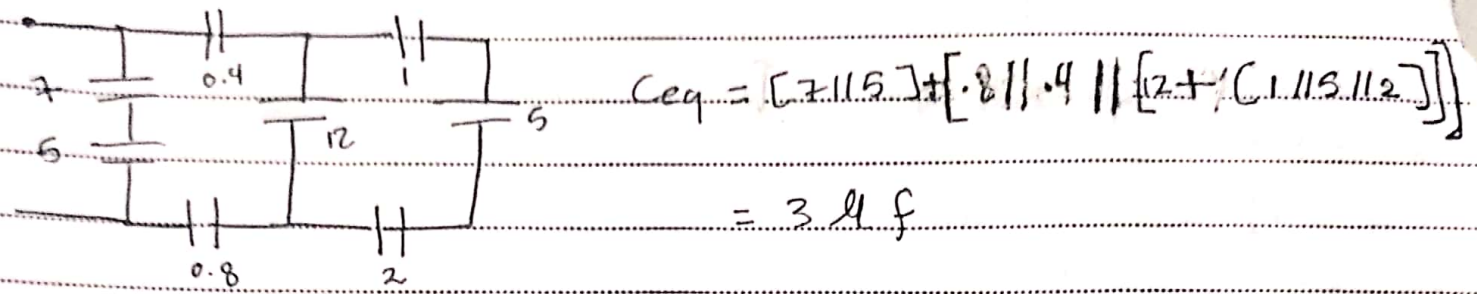 0.4
1
7
12
5
5
0.8
2
Ceq = [7||5]+[.8||.4||[12+(1||5||2]]]
= 3 µf